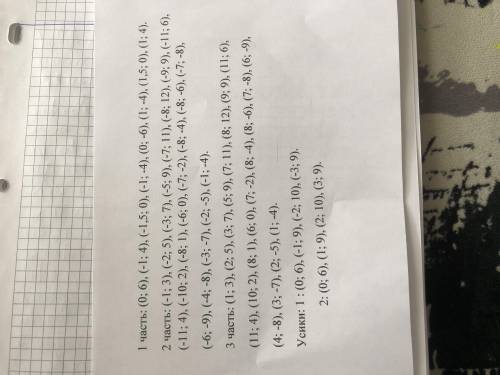 1 часть: (0; 6), (-1; 4), (-1,5; 0), (-1; -4), (0; -6), (1; -4), (1,5; 0), (1; 4).
2 часть: (-1; 3), (-2; 5), (-3; 7), (-5; 9), (-7; 11), (-8; 12), (-9; 9), (-11; 6),
(-11; 4), (-10; 2), (-8; 1), (-6; 0), (-7; -2), (-8; -4), (-8; -6), (-7; -8),
(-6; -9), (-4; -8), (-3; -7), (-2; -5), (-1; -4).
3 часть: (1; 3), (2; 5), (3; 7), (5; 9), (7; 11), (8; 12), (9; 9), (11; 6),
(11; 4), (10; 2), (8; 1), (6; 0), (7; -2), (8; -4), (8; -6), (7; -8), (6; -9),
(4; -8), (3; -7), (2; -5), (1; -4).
Усики: 1 : (0; 6), (-1; 9), (-2; 10), (-3; 9).
2: (0; 6), (1; 9), (2; 10), (3; 9).